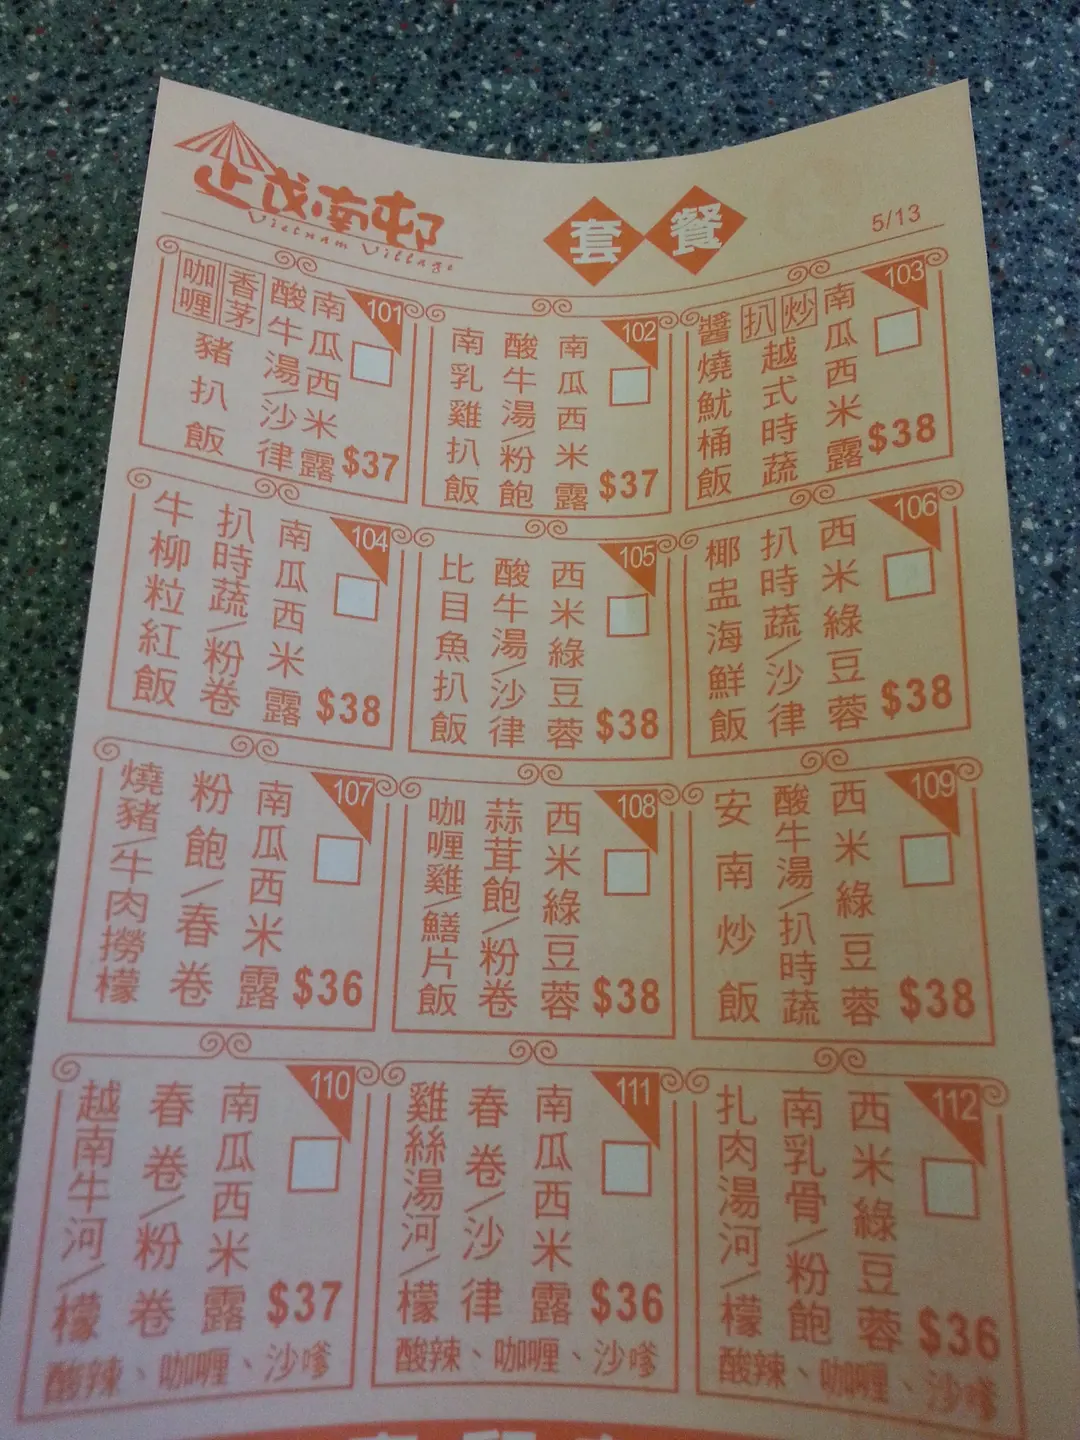 越南邨
Vietnam Village
套餐
5/13
101
咖喱
香茅
豬扒飯
酸牛湯/沙律
南瓜西米露
$37
102
南乳雞扒飯
酸牛湯/粉飽
南瓜西米露
$37
103
醬燒魷桶飯
扒
炒
越式時蔬
南瓜西米露
$38
104
牛柳粒紅飯
扒時蔬/粉卷
南瓜西米露
$38
105
比目魚扒飯
酸牛湯/沙律
西米綠豆蓉
$38
106
椰盅海鮮飯
扒時蔬/沙律
西米綠豆蓉
$38
107
燒豬/牛肉撈檬
粉飽/春卷
南瓜西米露
$36
108
咖喱雞/鱔片飯
蒜茸飽/粉卷
西米綠豆蓉
$38
109
安南炒飯
酸牛湯/扒時蔬
西米綠豆蓉
$38
110
越南牛河/檬
春卷/粉卷
南瓜西米露
$37
酸辣、咖喱、沙嗲
111
雞絲湯河/檬
春卷/沙律
南瓜西米露
$36
酸辣、咖喱、沙嗲
112
扎肉湯河/檬
南乳骨/粉飽
西米綠豆蓉
$36
酸辣、咖喱、沙嗲